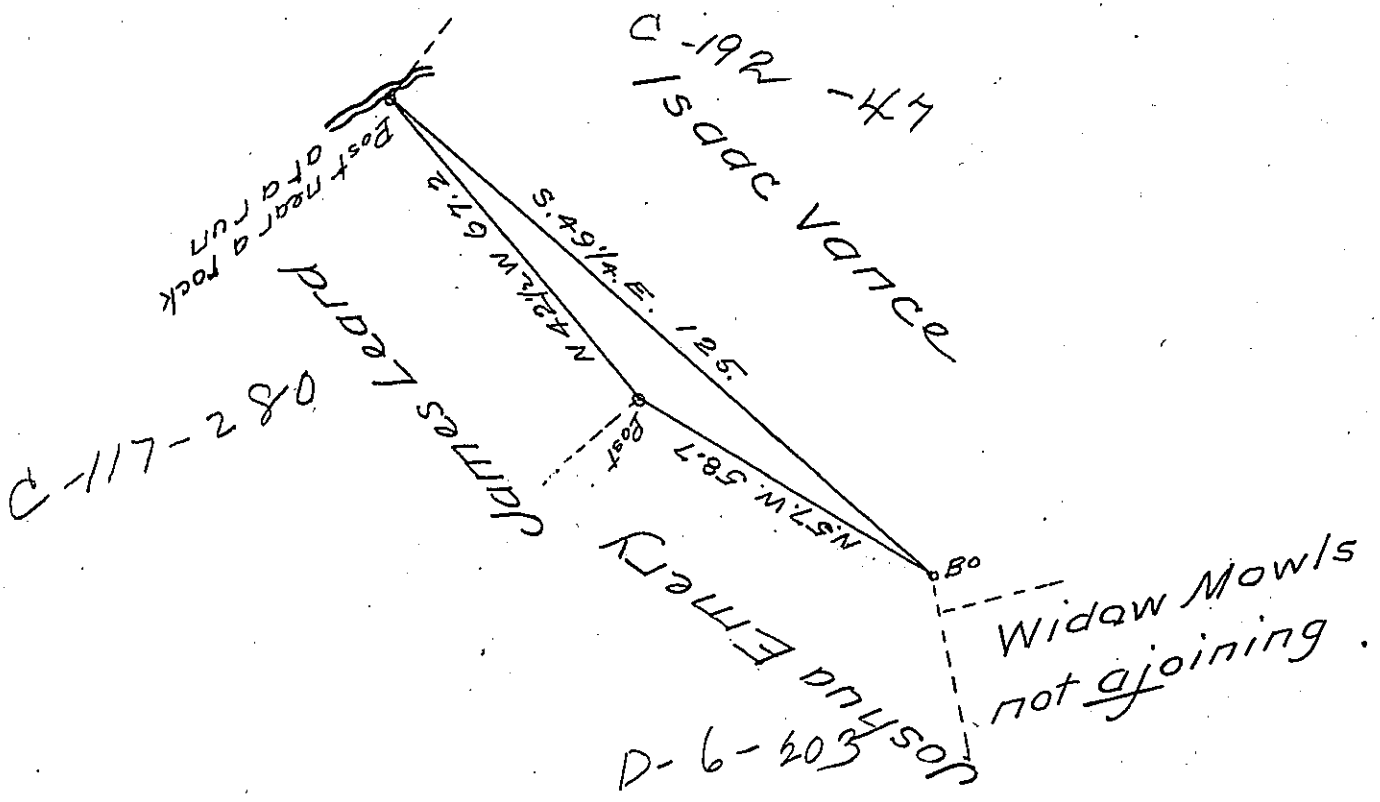 C-192-47
Isaac Vance
Post near a rock
at a run
S. 49 1/4. E. 125.
N 42 1/2 W 67.2
James Leard
C-117-280
Post
N. 57. W. 58.7
Bo
Joshua Emery
D-6-203
Widaw Mowls
not ajoining.